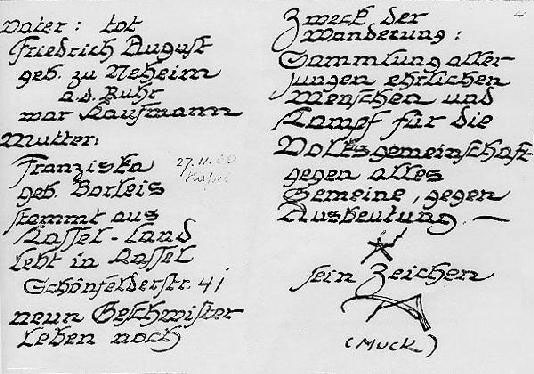 Vater: tot
Friedrich August
geb. zu Neheim
a.d. Ruhr
war Kaufmann
Mutter:
Franziska
geb. Borleis
stammt aus
Kassel-Land
lebt in Kassel
Schönfelderstr. 41
neun Geschwister
leben noch
27.11.
Kassel
4
Zweck der
Wanderung:
Sammlung aller
jungen ehrlichen
Menschen und
Kampf für die
Volksgemeinschaft
gegen alles
Gemeine, gegen
Ausbeutung. —
sein Zeichen
(Muck)